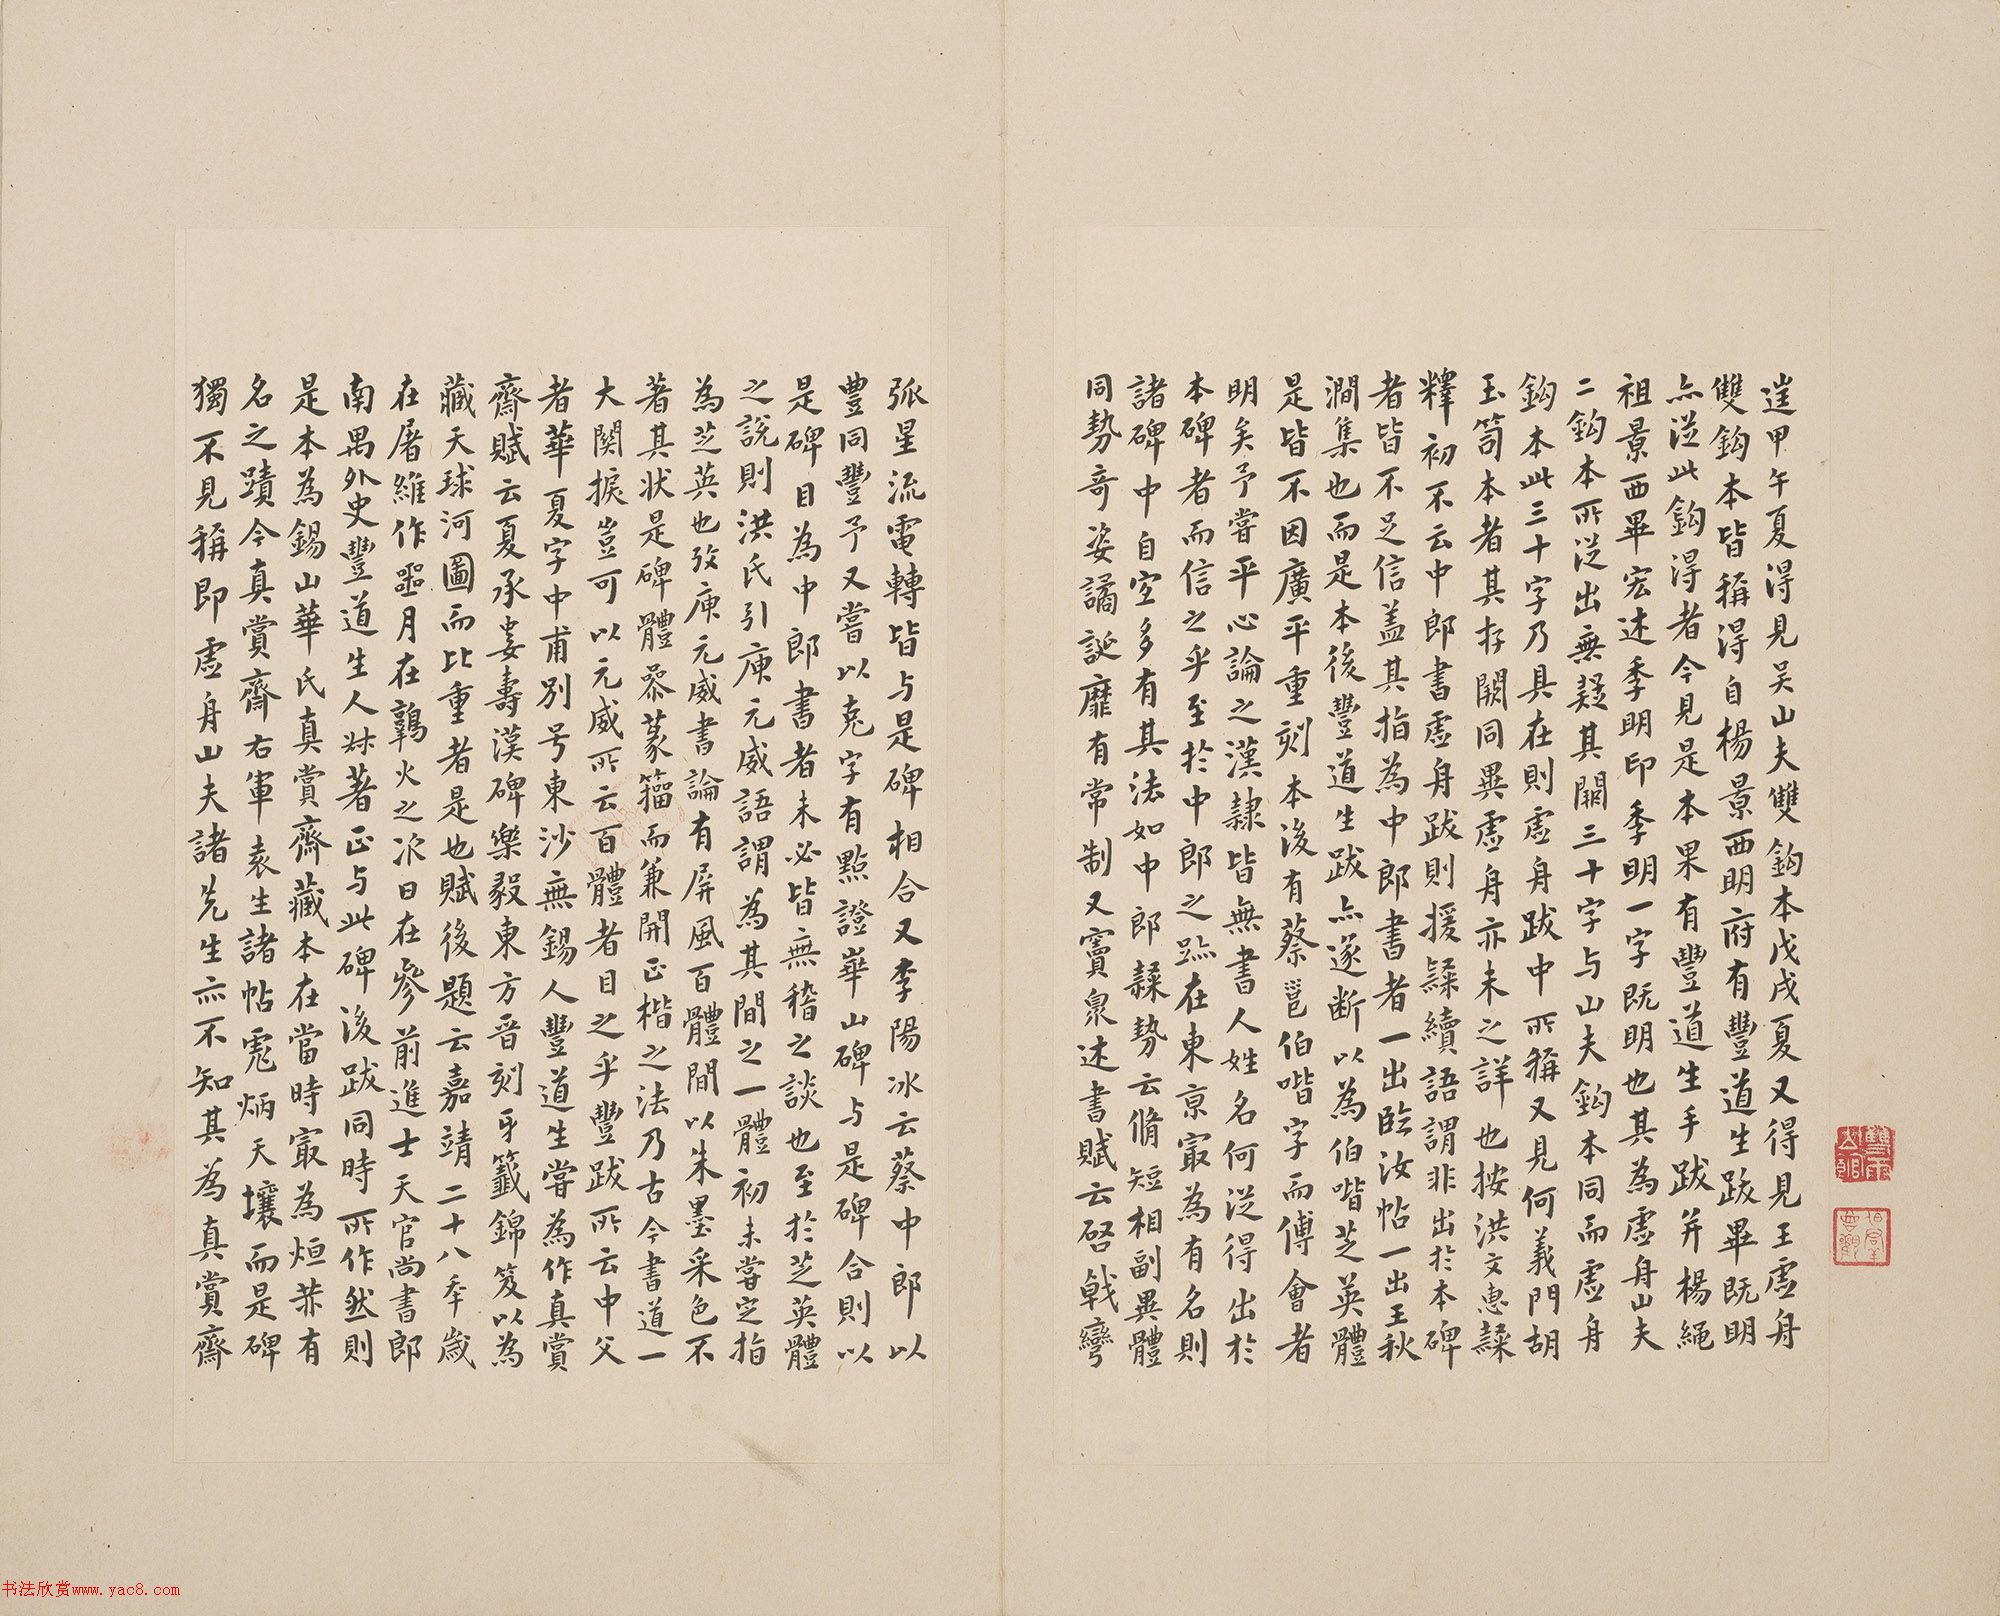 遑甲午夏得見吴山夫雙鈎本戊戌夏又得見王虚舟
雙鈎本皆稱得自楊景西明府有豐道生跋畢既明
亦從此鈎得者今見是本果有豐道生手跋并楊繩
祖景西畢宏述季明印季明一字既明也其為虚舟山夫
二鈎本所從出無疑其闕三十字与山夫鈎本同而虚舟
鈎本此三十字乃具在則虚舟跋中所稱又見何義門胡
玉笥本者其存闕同異虚舟亦未之詳也按洪文惠隸
釋初不云中郎書虚舟跋則援隸續語謂非出於本碑
者皆不足信盖其指為中郎書者一出臨汝帖一出王秋
澗集也而是本後豐道生跋亦遂断以為伯喈芝英體
是皆不因廣平重刻本後有蔡邕伯喈字而傅會者
明矣予嘗平心論之漢隸皆無書人姓名何從得出於
本碑者而信之乎至於中郎之跡在東京㝡為有名則
諸碑中自空多有其法如中郎隸勢云脩短相副異體
同勢奇姿譎誕靡有常制又竇臮述書賦云啓戟彎
弧星流電轉皆与是碑相合又李陽冰云蔡中郎以
豊同豐予又嘗以克字有點證崋山碑与是碑合則以
是碑目為中郎書者未必皆無稽之談也至於芝英體
之說則洪氏引庾元威語謂為其間之一體初未嘗定指
為芝英也攷庾元威書論有屏風百體間以朱墨采色不
著其状是碑體叅篆籀而兼開正楷之法乃古今書道一
大関捩豈可以元威所云百體者目之乎豐跋所云中父
者華夏字中甫別号東沙無錫人豐道生嘗為作真賞
齋賦云夏承婁壽漢碑樂毅東方晋刻牙籤錦笈以為
藏天球河圖而比重者是也賦後題云嘉靖二十八年歲
在屠維作噩月在鶉火之次日在參前進士天官尚書郎
南禺外史豐道生人尗著正与此碑後跋同時所作然則
是本為錫山華氏真賞齋藏本在當時㝡為烜赫有
名之蹟今真賞齋右軍袁生諸帖彪炳天壤而是碑
獨不見稱即虚舟山夫諸先生亦不知其為真賞齋
書法欣赏www.yac8.com